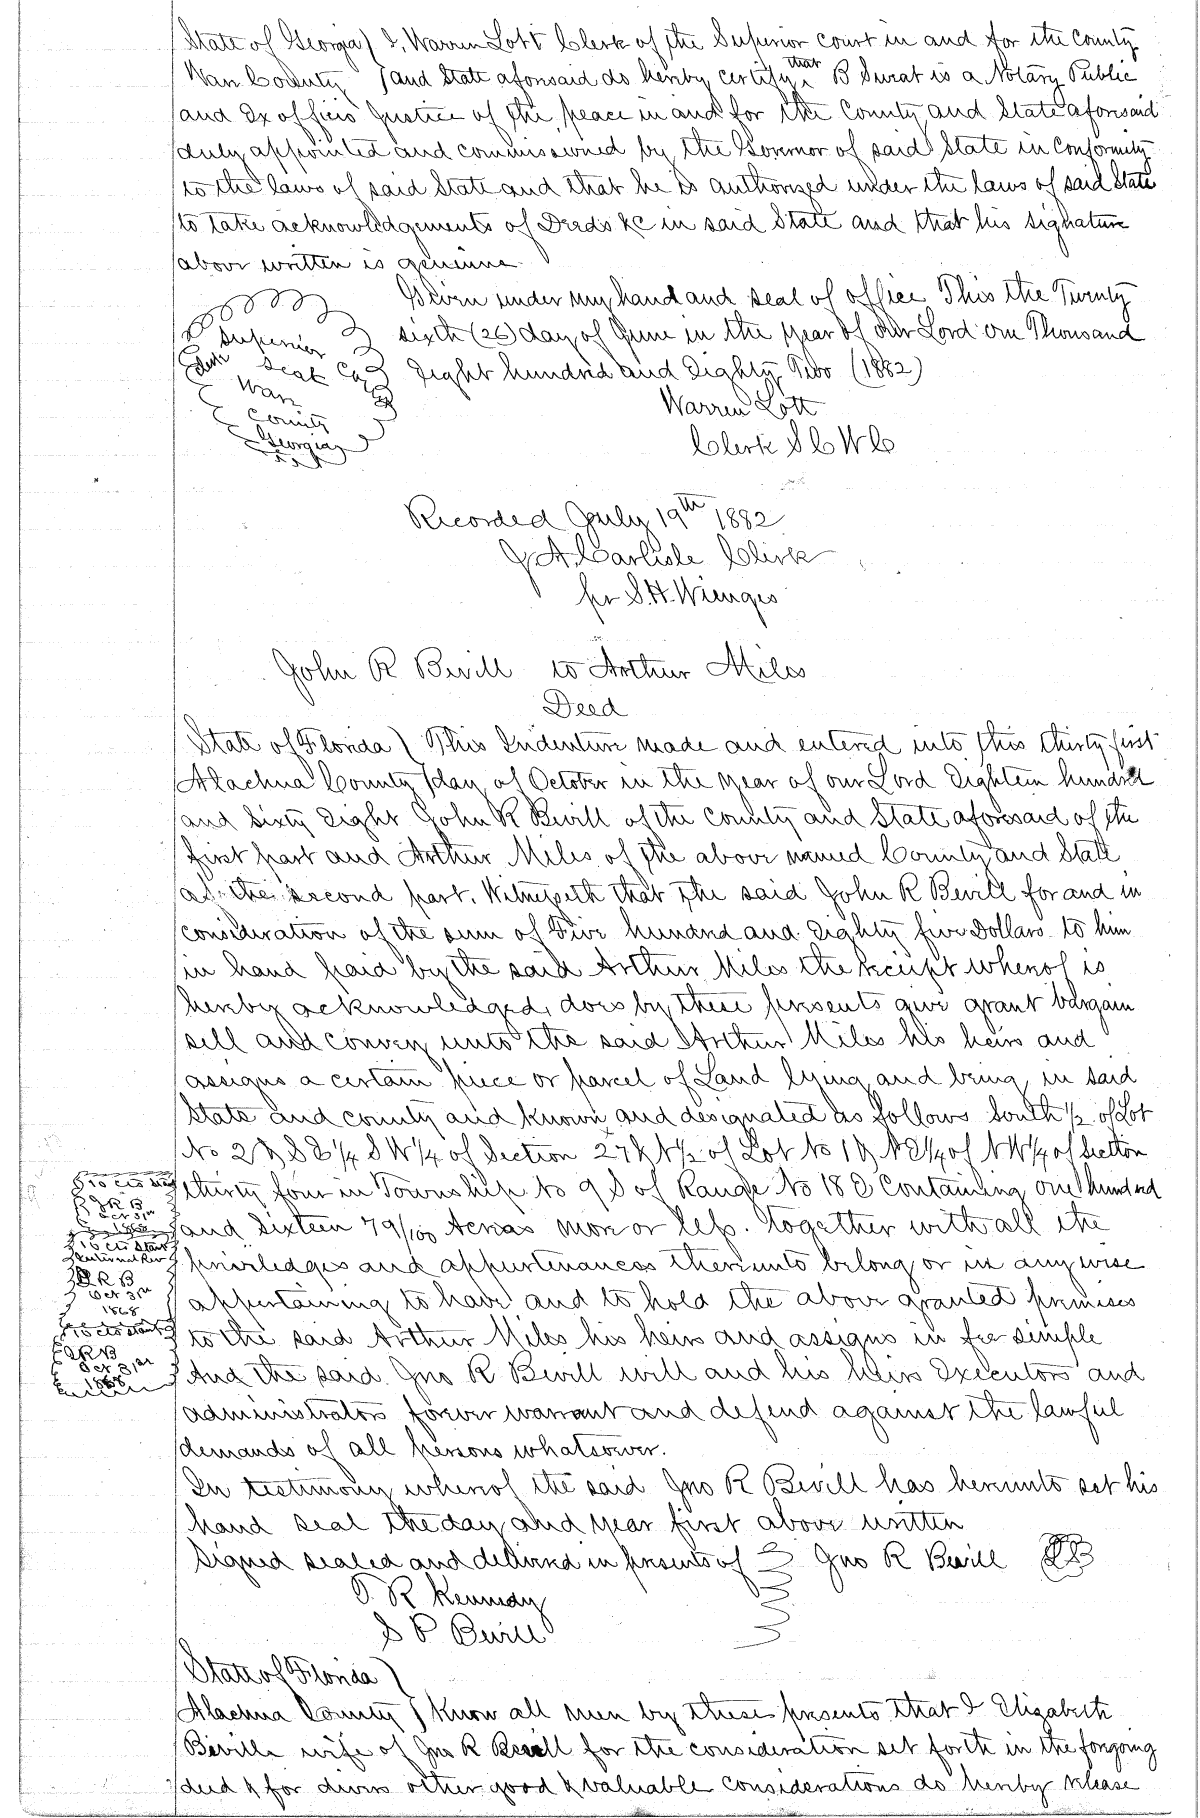 State of Georgia) I, Warren Lott Clerk of the Superior court in and for the County
Ware County )and State aforesaid do hereby certify that B Surat is a Notary Public
and Ex officio Justice of the peace in and for the County and State aforesaid
duly appointed and commissioned by the Governor of said State in Conformity
to the laws of said State and that he is authorised under the laws of said State
to take acknowledgements of Deeds &C in said State and that his signature
above written is genuine
Given under my hand and seal of office This the Twenty
sixth (26) day of June in the year of our Lord One Thousand
Eight hundred and Eighty Two (1882)
Superior
Seal
Ware
County
Georgia
Warren Lott
Clerk S C W C
Recorded July 19th 1882
J A. Carlisle Clerk
per S. H. Wienges
John R Bevill to Arthur Miles
Deed
State of Florida ) This Indenture made and entered into this thirty first
Alachua County )day of October in the year of our Lord Eighteen hundred
and Sixty Eight John R Bevill of the County and State aforesaid of the
first part and Arthur Miles of the above named County and State
of the second part. Witnesseth that the said John R Bevill for and in
consideration of the sum of Five hundred and Eighty five Dollars to him
in hand paid by the said Arthur Miles the reciept whereof is
hereby acknowledged, does by these presents give grant bargain
sell and convey unto the said Arthur Miles his heirs and
assigns a certain piece or parcel of Land lying and being in said
State and county and known and designated as follows South 1/2 of Lot
No 2 & S E 1/4 S W 1/4 of Section 27 & N 1/2 of Lot No 1 & N E 1/4 of N W 1/4 of Section
thirty four in Township No 9 S of Range No 18 E Containing one hundred
and Sixteen 79/100 Acres more or less. together with all the
priviledges and appurtenances thereunto belong or in any wise
appertaining to have and to hold the above granted premises
to the said Arthur Miles his heirs and assigns in fee simple
And the said Jno R Bevill will and his heirs Executors and
administrators forever warrant and defend against the lawful
demands of all persons whatsoever.
In testimony whereof the said Jno R Bevill has hereunto set his
hand seal the day and year first above written
Signed sealed and delivered in presents of Jno R Bevill
T. R Kennedy
S P Bevill
10 cts
J R B
Oct 31st
1868
10 cts Stamp
J R B
Oct 31st
1868
10 cts Stamp
J R B
Oct 31st
1868
State of Florida )
Alachua County ) Know all men by these presents that I Elizabeth
Beville wife of Jno R Bevill for the consideration set forth in the forgoing
deed & for divers other good & valuable considerations do hereby release